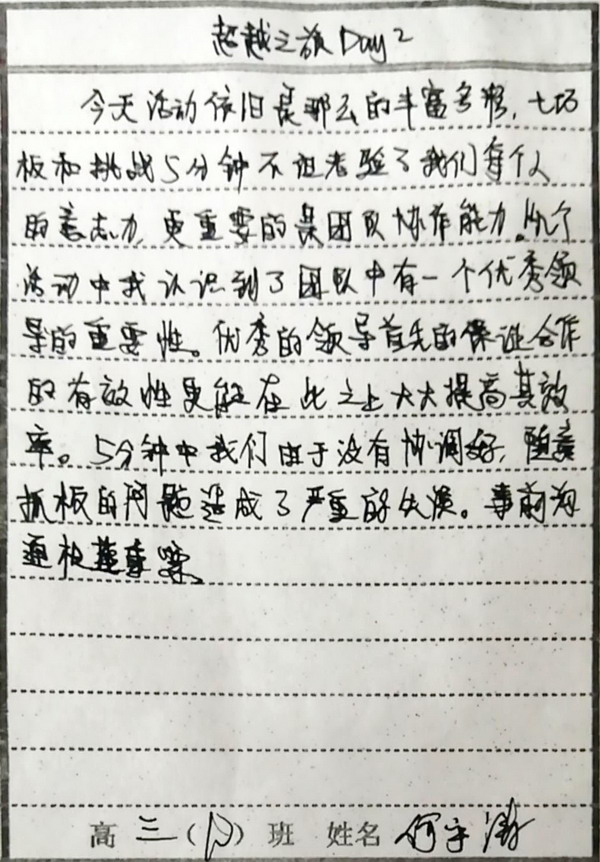 超越之旅Day2
今天活动依旧是那么的丰富多彩，七巧
板和挑战5分钟不但考验了我们每个人
的意志力，更重要的是团队协作能力。几个
活动中我认识到了团队中有一个优秀领
导的重要性。优秀的领导首先的保证合作
的有效性更能在此之上大大提高其效
率。5分钟中我们由于没有协调好，随意
抓板的问题造成了严重的失误。事前沟
通
高三（）班 姓名 何宇